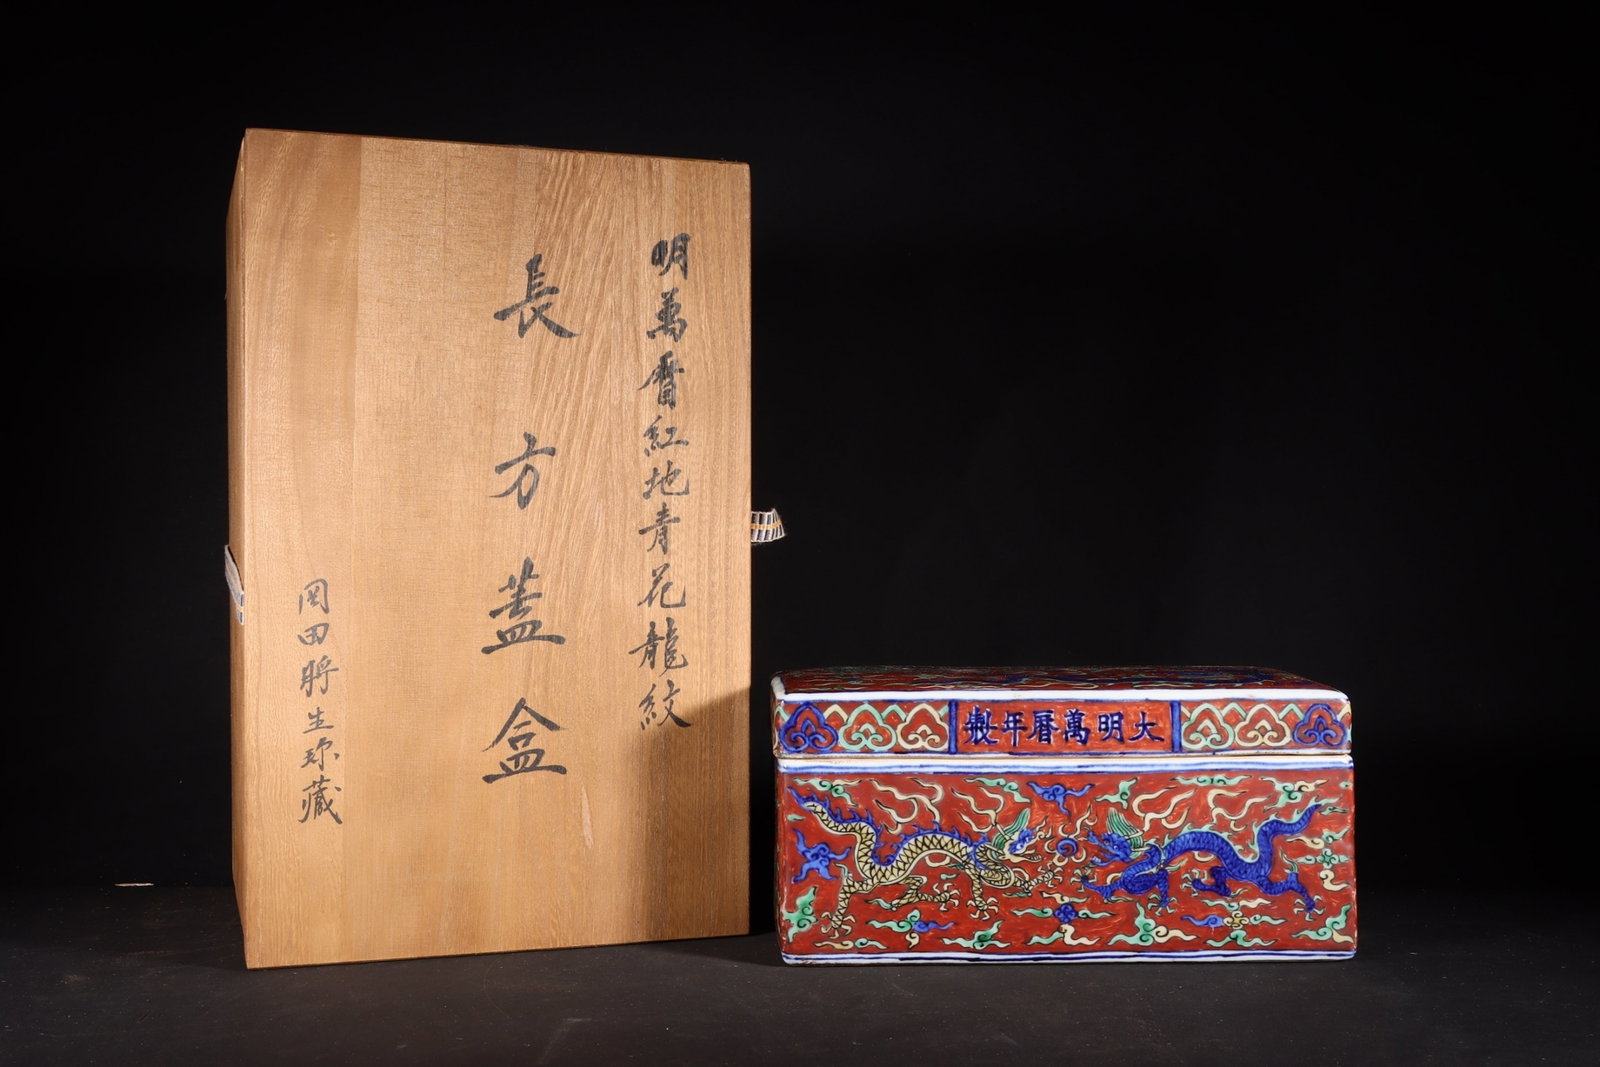 明萬曆紅地青花龍紋
長方蓋盒
岡田將生珎藏
大明萬曆年製